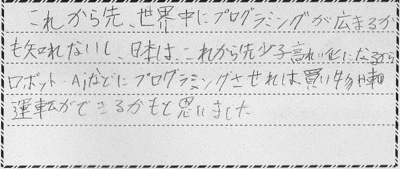 これから先、世界中にプログラミングが広まるか
も知れないし、日本は、これから先少子高れい化になるから
ロボット・Aiなどにプログラミングさせれば、買い物や車
運転ができるかもと思いました